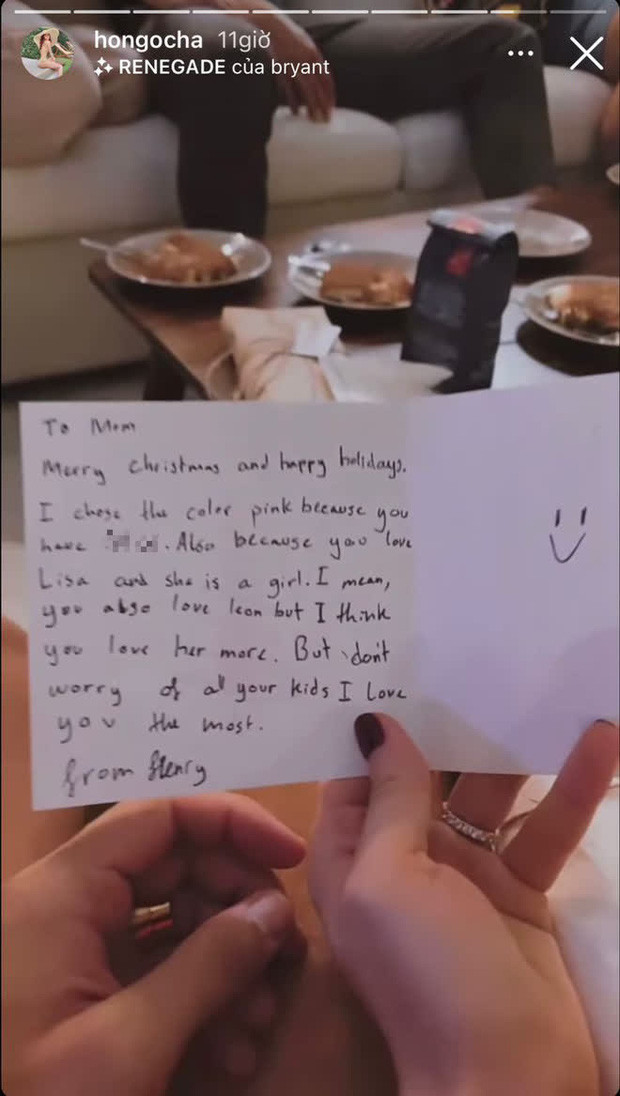 hongocha 11giờ
RENEGADE của bryant
To Mom
Merry Christmas and happy holidays.
I chose the color pink because you
have . Also because you love
Lisa and she is a girl. I mean,
you also love leon but I think
you love her more. But don't
worry of all your kids I love
you the most.
from Henry